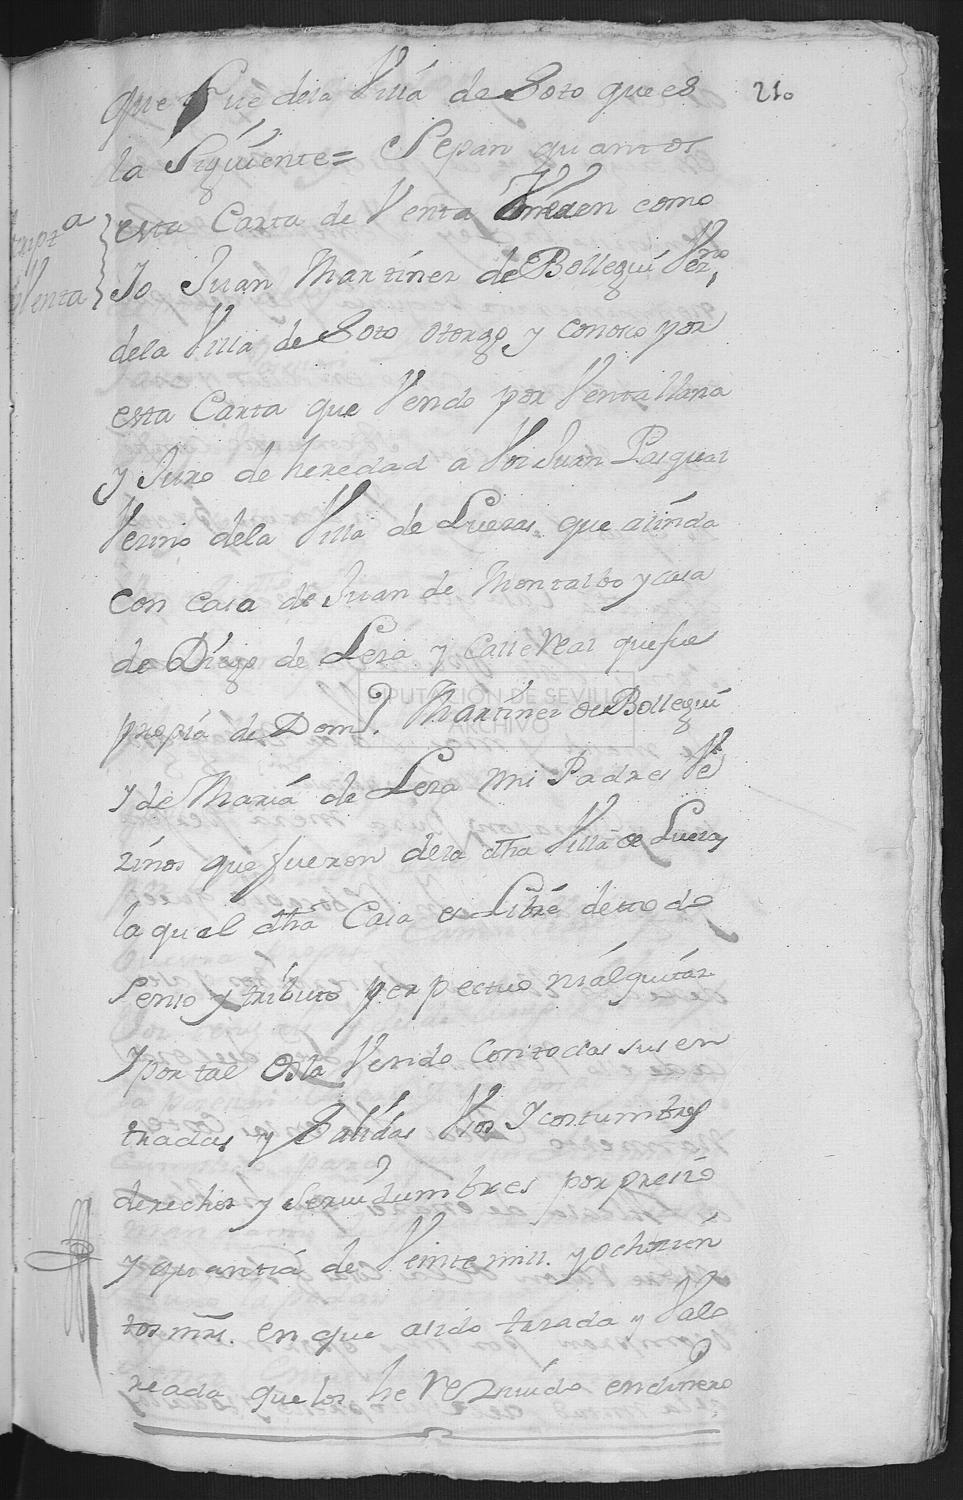 210
que fue dela Villa de Soto que es
la Siguiente= Sepan quantos
esta Carta de Venta Vieren como
Yo Juan Martinez de Bollegui Vez.no
dela Villa de Soto otorgo y conosco por
esta Carta que Vendo por Venta llana
y Juro de heredad a Vos Juan Pasqual
Vezino dela Villa de Lueza, que alinda
con casa de Juan de Montalbo y casa
de Diego de Leza y Calle Real que fue
propia de Dom.o Martinez de Bollegui
y de Maria de Leza mi Padres Ve
zinos que fueron dela dha Villa de Lueza,
la qual dha Casa es Libre de todo
senso y tributo perpetuo ni alquitar
Y por tal os la Vendo con todas sus en
tradas, y Salidas Vsos Y costumbres
derechos y seruidumbres por presio
y quantia de Veinte mill. y ochosien
tos mrs. en que asido tasada y Valo
reada que los he Resiuido en dinero
Venta